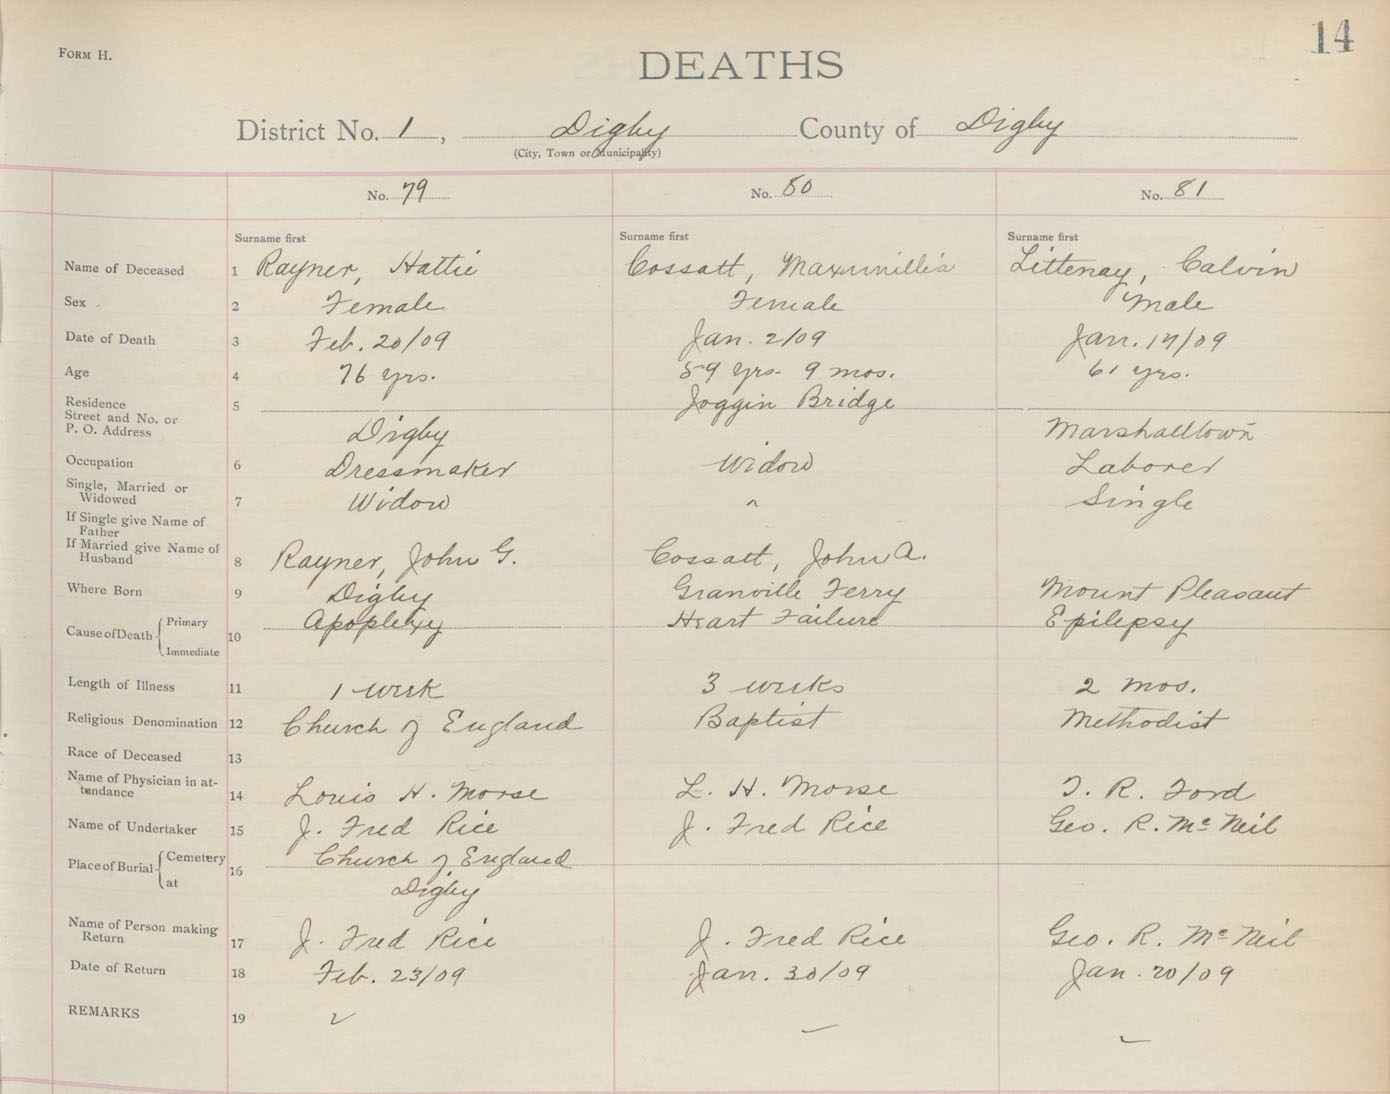 14
FORM H.
DEATHS
District No. 1, Digby County of Digby
(City, Town or Municipality)
No. 79 No. 80 No. 81
Surname first Surname first Surname first
Name of Deceased 1 Rayner, Hattie Cossatt, Maxumillia Littenay, Calvin
Sex 2 Female Female Male
Date of Death 3 Feb. 20/09 Jan. 2/09 Jan. 17/09
Age 4 76 yrs. 59 yrs. 9 mos. 61 yrs.
Residence 5 Joggin Bridge
Street and No. or
P. O. Address Digby Marshalltown
Occupation 6 Dressmaker Widow Laborer
Single, Married or
Widowed 7 Widow " Single
If Single give Name of
Father
If Married give Name of
Husband 8 Rayner, John G. Cossatt, John A.
Where Born 9 Digby Granville Ferry Mount Pleasant
Cause of Death Primary 10 Apoplexy Heart Failure Epilepsy
Immediate
Length of Illness 11 1 week 3 weeks 2 mos.
Religious Denomination 12 Church of England Baptist Methodist
Race of Deceased 13
Name of Physician in at-
tendance 14 Louis H. Morse L. H. Morse T. R. Ford
Name of Undertaker 15 J. Fred Rice J. Fred Rice Geo. R. McNeil
Place of Burial Cemetery 16 Church of England
at Digby
Name of Person making
Return 17 J. Fred Rice J. Fred Rice Geo. R. McNeil
Date of Return 18 Feb. 23/09 Jan. 30/09 Jan. 20/09
REMARKS 19